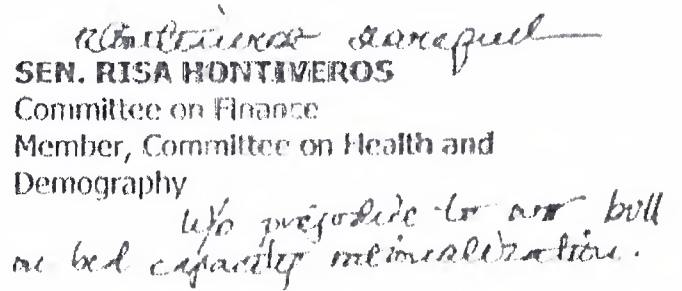 Hontiveros Baraquel
SEN. RISA HONTIVEROS
Committee on Finance
Member, Committee on Health and
Demography
W/o prejudice to our bill
on bed capacity rationalization.